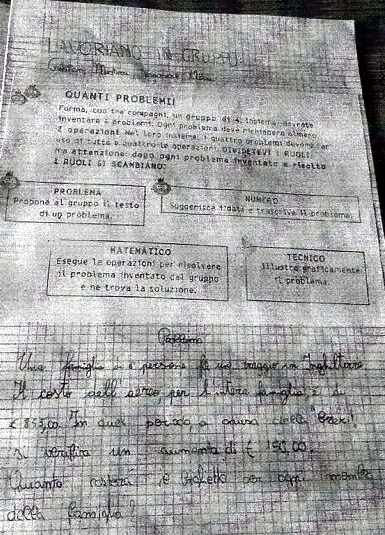 LAVORIAMO IN GRUPPO
QUANTI PROBLEMI!
Forma, con tre compagni, un gruppo di 4. Insieme, dovrete
inventare 4 problemi. Ogni problema deve richiedere almeno
2 operazioni. Nel loro insieme, i quattro problemi devono far
uso di tutte e quattro le operazioni. DIVIDETEVI I RUOLI,
ma attenzione: dopo ogni problema inventato e risolto
I RUOLI SI SCAMBIANO.
PROBLEMA
Propone al gruppo il testo
di un problema.
NUMERO
Suggerisce i dati e trascrive il problema.
MATEMATICO
Esegue le operazioni per risolvere
il problema inventato dal gruppo
e ne trova la soluzione.
TECNICO
Illustra graficamente
il problema.
Problema
Una famiglia di persone fa un viaggio in Inghilterra.
Il costo dell'aereo per l'intera famiglia è di
In quel periodo a causa della
si verifica un aumento di € 150,00.
Quanto costerà il biglietto per ogni membro
della famiglia?